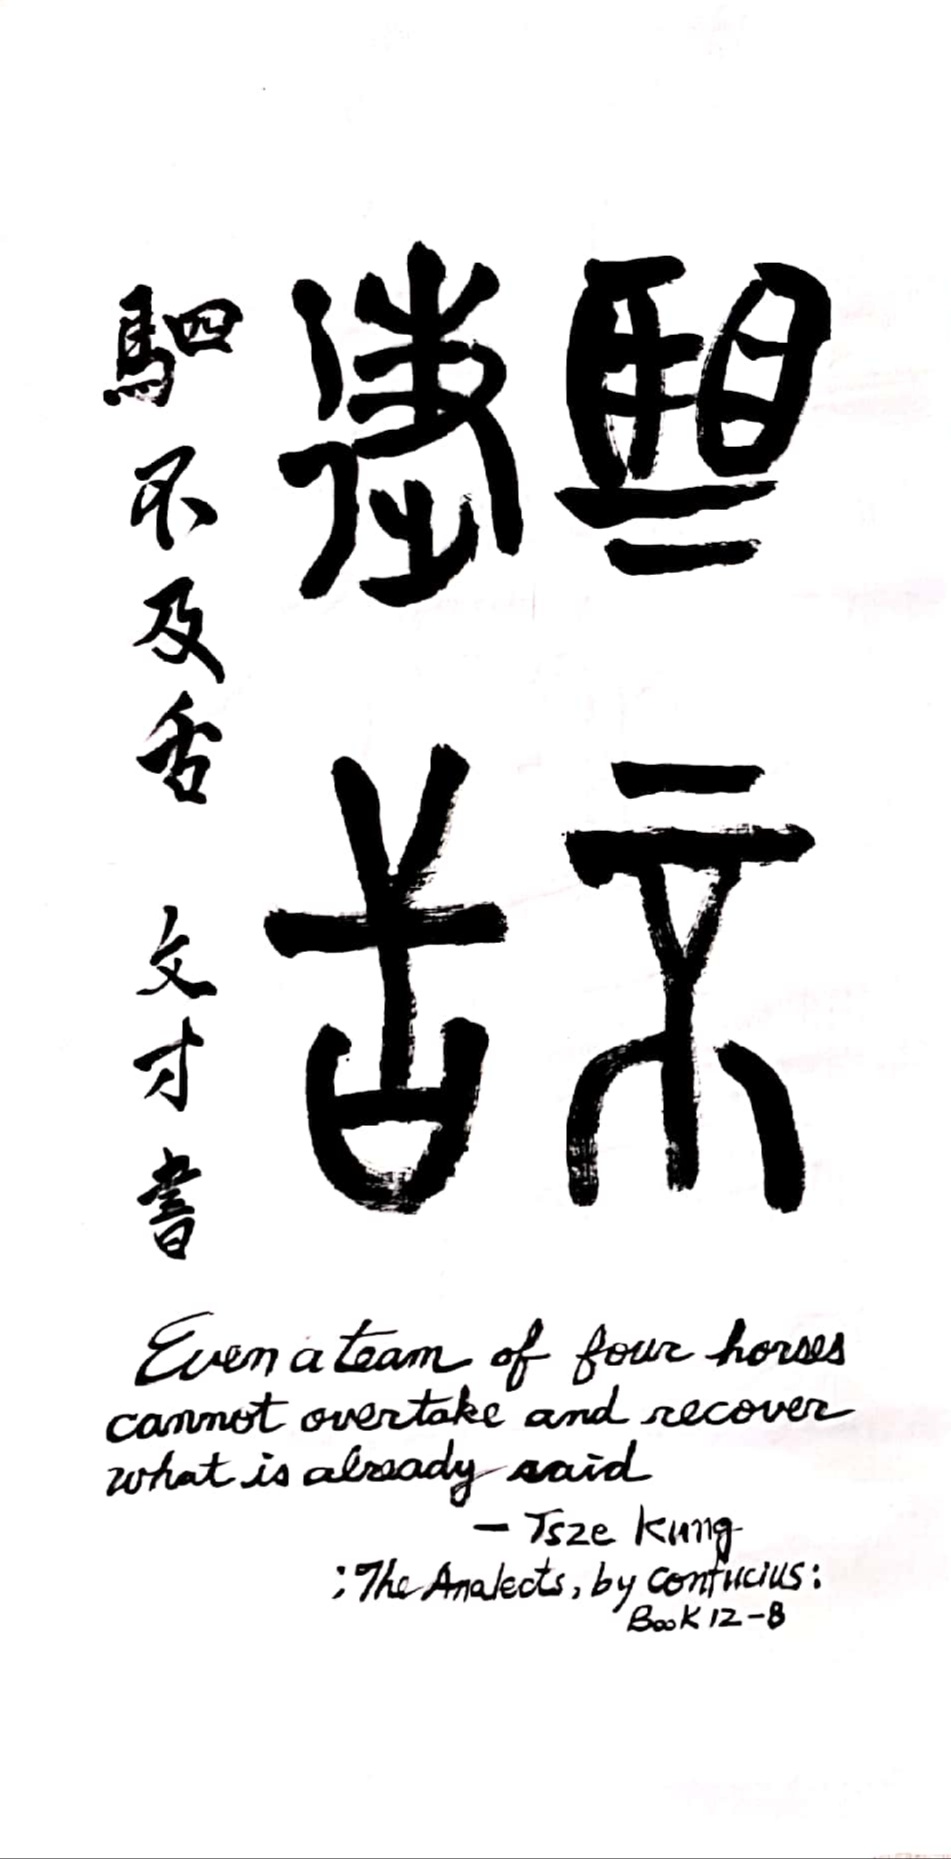 駟不
及舌
駟不及舌 文才書
Even a team of four horses
cannot overtake and recover
what is already said
— Tsze Kung
; The Analects, by Confucius:
Book 12-8